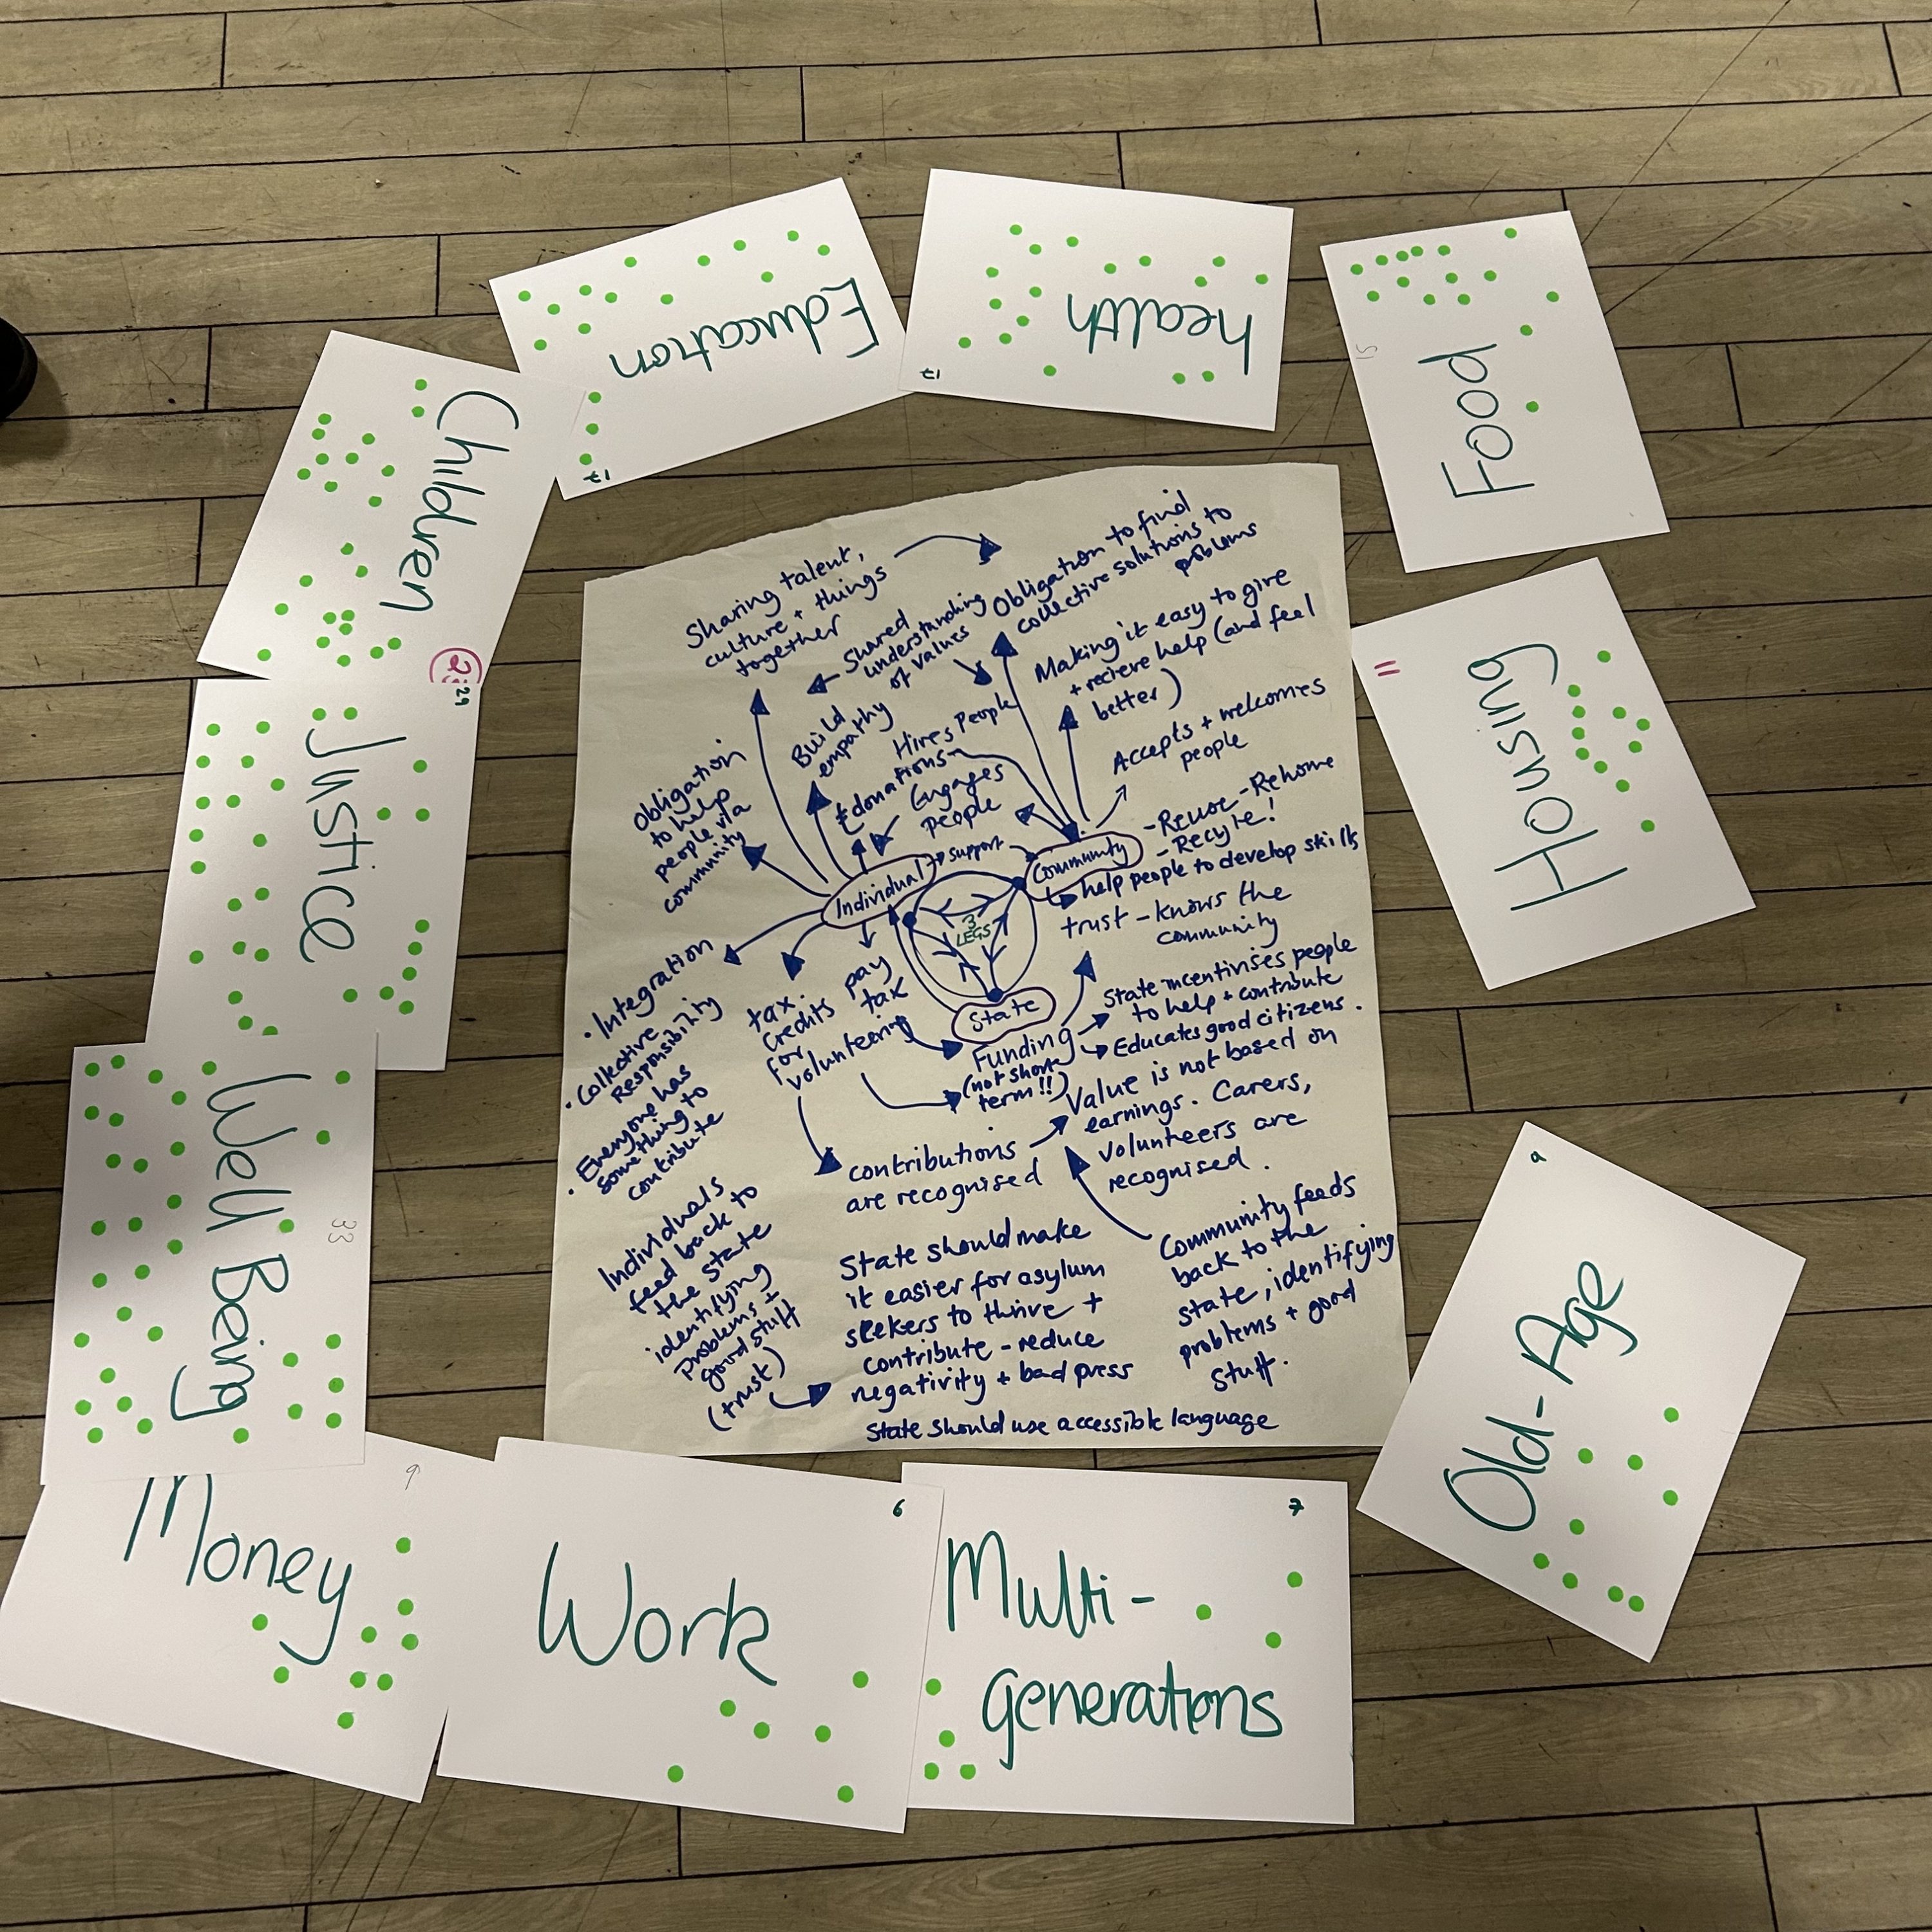 Education
17
health
17
Food
15
Children
Justice
29
Housing
11
Well Being
33
Old-Age
9
Money
9
Work
6
Multi-
generations
7
Sharing talent,
culture + things
together
Shared
understanding
of values
Obligation to find
collective solutions to
problems
Making it easy to give
+ recieve help (and feel
better)
Build
empathy
Hires People
£donations
Engages
people
Accepts + welcomes
people
Obligation
to help
people via
community
Individual
support
Community
- Reuse - Rehome
- Recycle!
help people to develop skills
trust - knows the
community
3
LEGS
State
• Integration
• Collective
Responsibility
• Everyone has
something to
contribute
tax
credits
for
volunteering
pay
tax
Funding
(not short
term!!)
State incentivises people
to help + contribute
Educates good citizens.
Value is not based on
earnings. Carers,
volunteers are
recognised.
contributions
are recognised
Individuals
feed back to
the State
identifying
problems +
good stuff
(trust)
State should make
it easier for asylum
seekers to thrive +
contribute - reduce
negativity + bad press
Community feeds
back to the
state, identifying
problems + good
stuff.
State should use accessible language